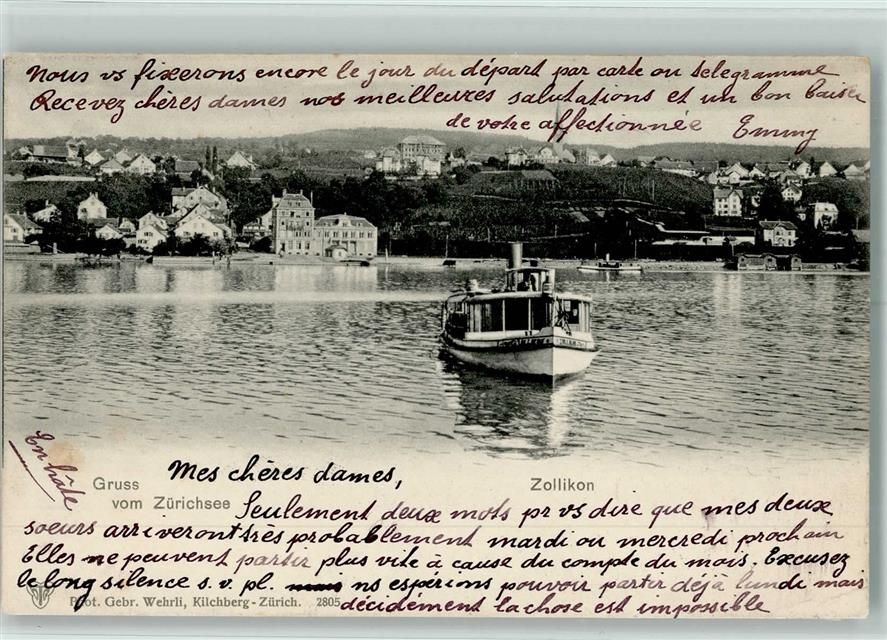 Nous vs fixerons encore le jour du départ par carte ou telegramme
Recevez chères dames nos meilleures salutations et un bon baiser
de votre affectionnée Emmy
En hâte
Gruss
vom Zürichsee
Zollikon
Mes chères dames,
Seulement deux mots pr vs dire que mes deux
soeurs arriveront très probablement mardi ou mercredi prochain
Elles ne peuvent partir plus vite à cause du compte du mois. Excusez
le long silence s. v. pl. ns espérions pouvoir partir déjà lundi mais
décidément la chose est impossible
Phot. Gebr. Wehrli, Kilchberg-Zürich. 2805